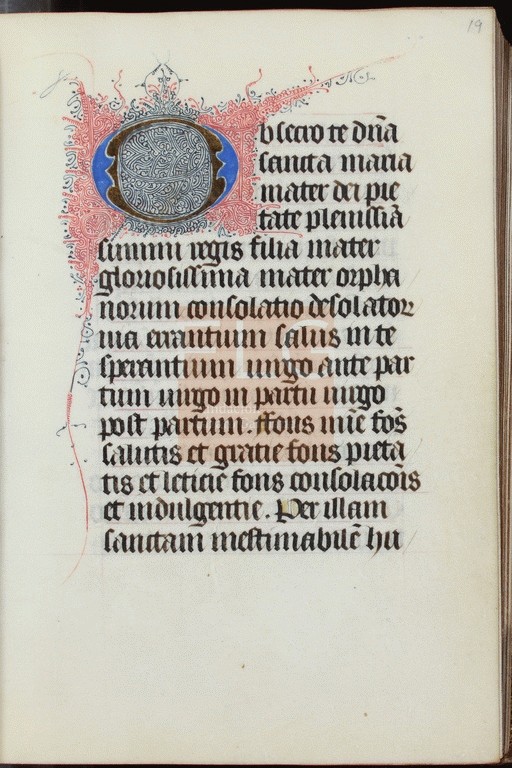 19
Obsecro te dña
sancta maria
mater dei pie
tate plenissiã
summi regis filia mater
gloriosissima mater orpha
norum consolatio desolator
via errantium salus in te
sperantium virgo ante par
tum virgo in partu virgo
post partum. ffons mĩe fõs
salutis et gratie fons pieta
tis et leticie fons consolacõis
et indulgentie. Per illam
sanctam inestimabilẽ hu